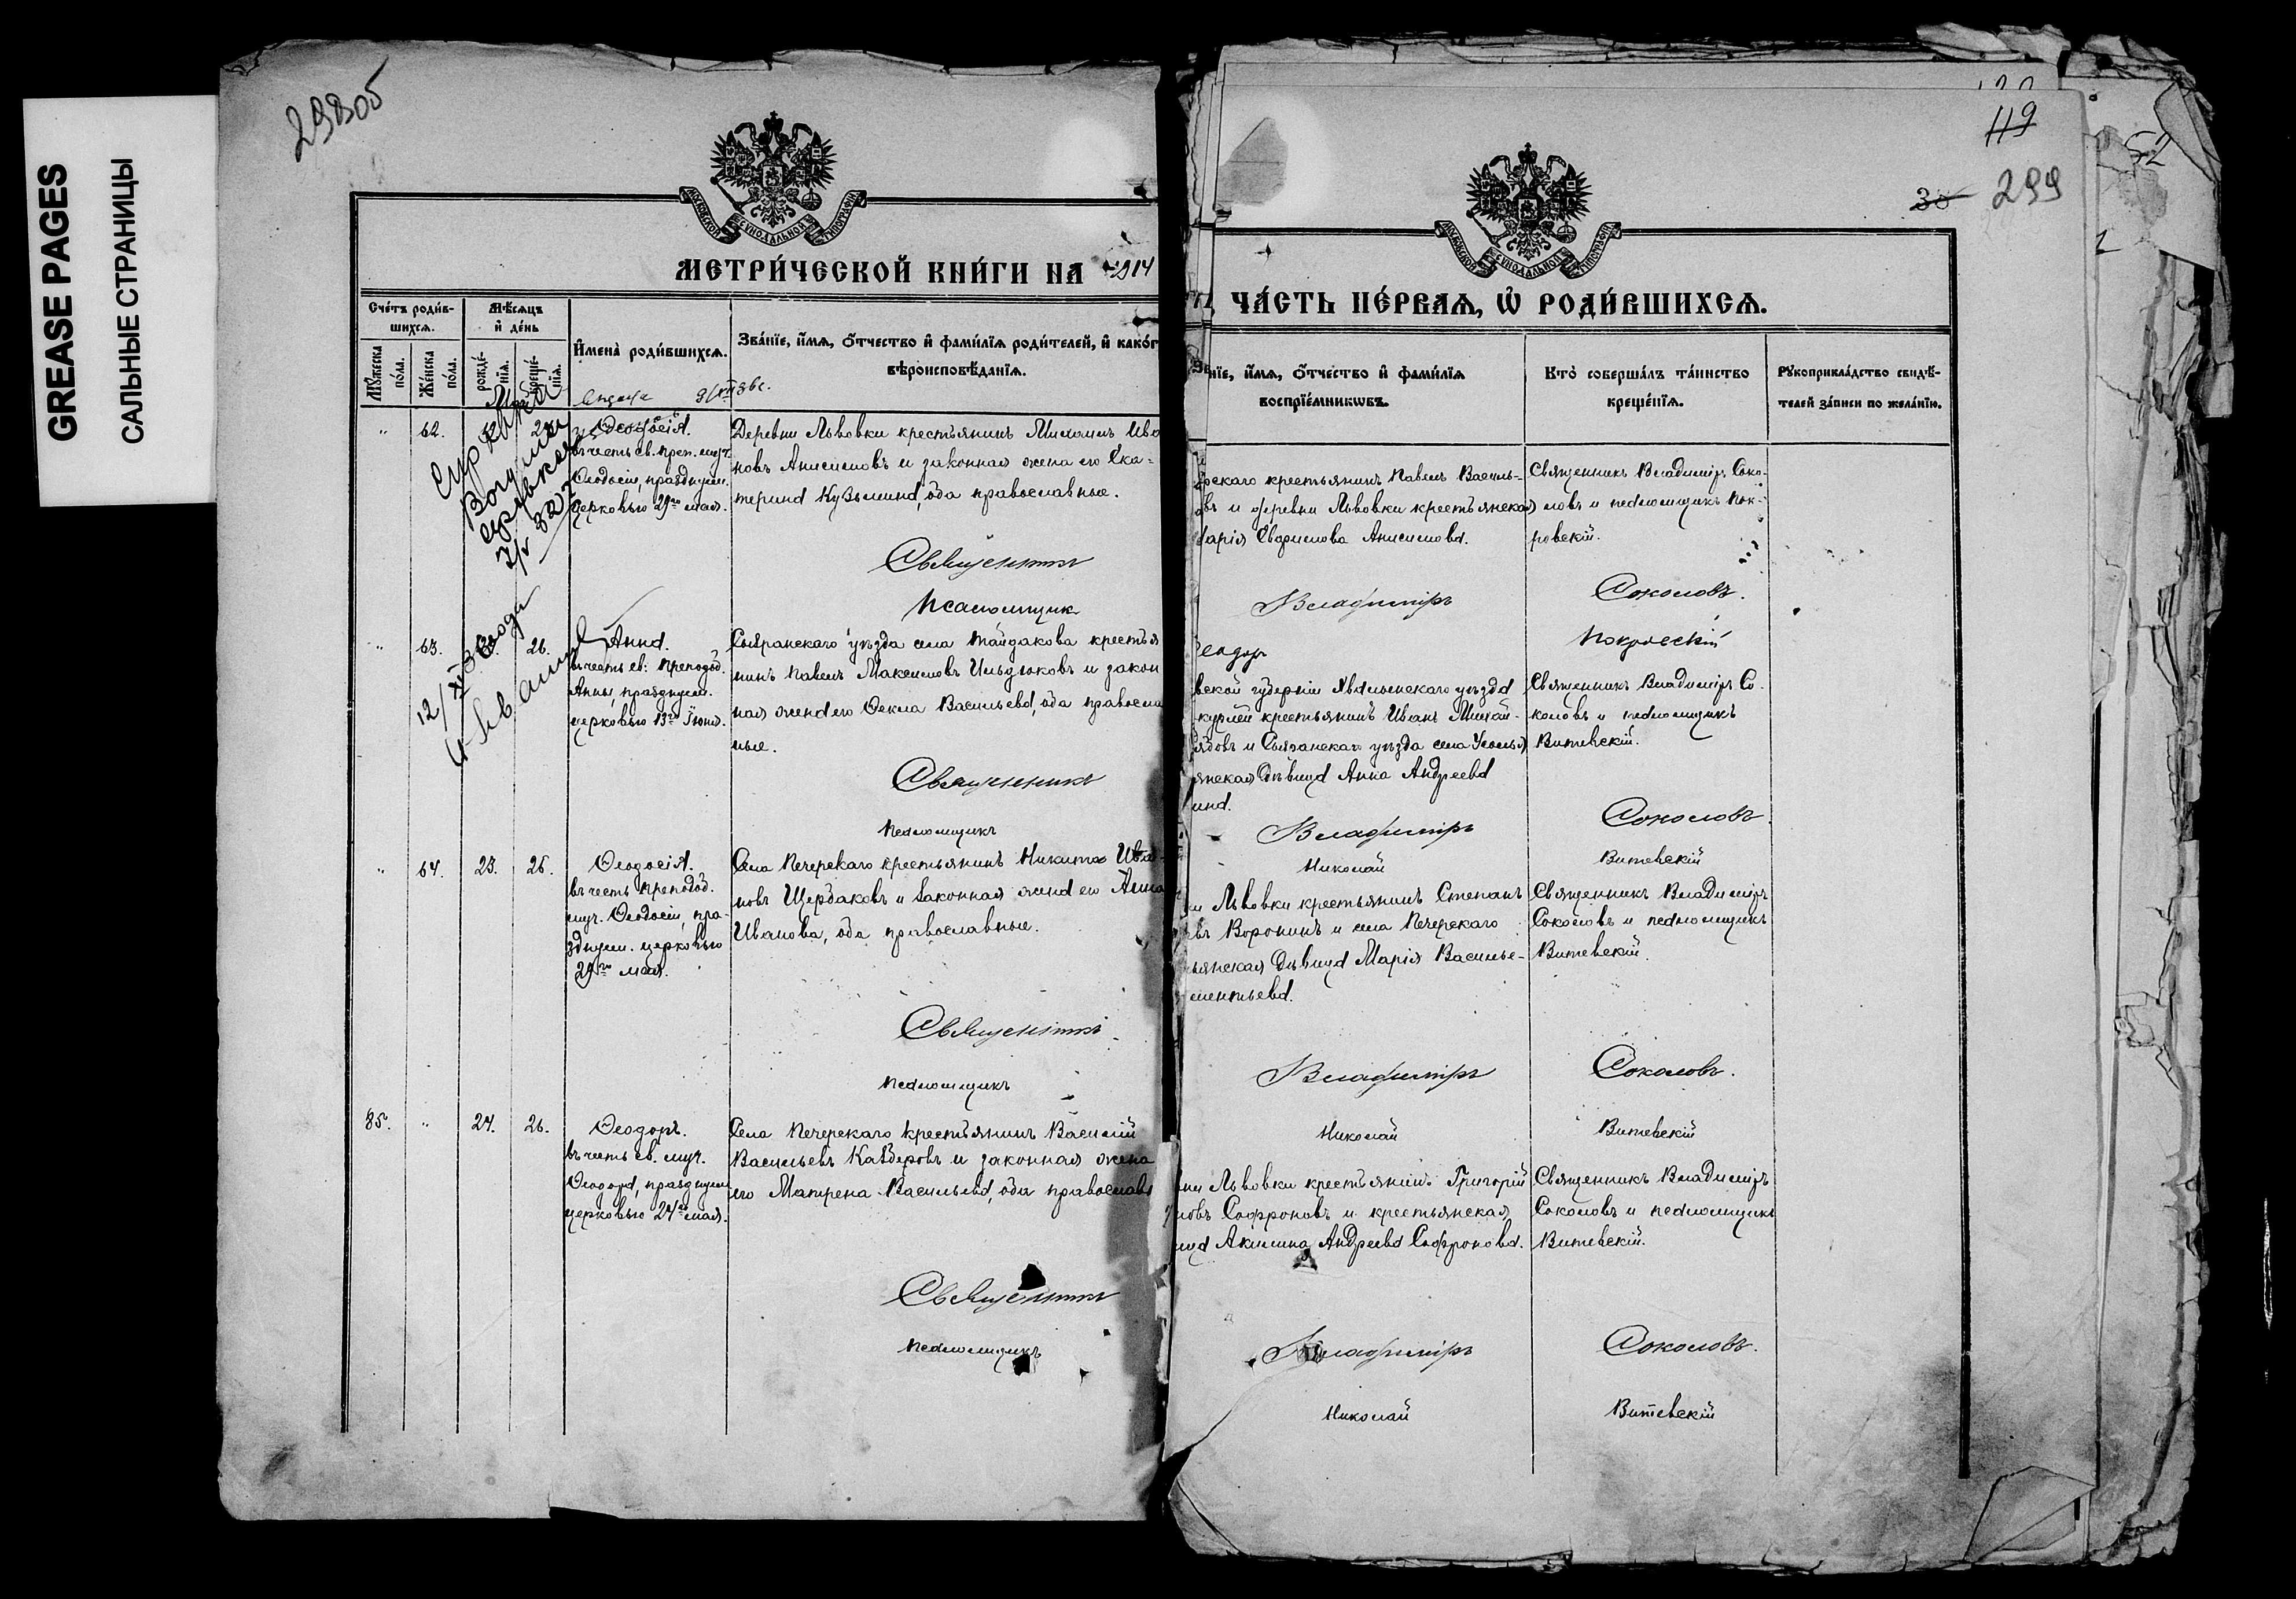 GREASE PAGES
САЛЬНЫЕ СТРАНИЦЫ
298об
МОСКОВСКОЙ СУНОДАЛЬНОЙ ТИПОГРАФІИ
МЕТРИ́ЧЕСКОЙ КНИ́ГИ НА 1914
Сче́тъ роди́в-
шихся.
Мѣ́сяцъ
и҆ де́нь
Мꙋ́жеска
по́ла.
Же́нска
по́ла.
рожде́-
нїѧ.
креще́-
нїѧ.
И҆мена̀ роди́вшихсѧ.
Зва́нїе, и҆́мѧ, ѻ҆́тчество и҆ фами́лїѧ роди́телей, и҆ како́г
вѣроисповѣ́данїѧ.
Май
„ 62.
Ѳеодосія.
въ честь св. преп. муч.
Ѳеодосіи, празднуем.
церковью 29го мая.
Деревни Львовки крестьянинъ Михаилъ Ива
новъ Анисимовъ и законная жена его Ека-
терина Кузьмина, оба православные.
Священникъ
Псаломщик
„ 63. 26.
Анна.
въ честь св. преподоб.
Анны, празднуем.
церковью 13го Іюня.
Сызранскаго уѣзда села Тайдакова крестья
нинъ Павелъ Максимовъ Ильдюковъ и закон
ная жена его Ѳекла Васильева, оба православ
ные.
Священникъ
Псаломщикъ
„ 64. 23. 26.
Ѳеодосія.
въ честь преподоб.
муч. Ѳеодосіи, пра-
зднуем. церковью
29го мая.
Села Печерскаго крестьянинъ Никита Ива-
новъ Щербаковъ и законная жена его Анна
Иванова, оба православные.
Священникъ
Псаломщикъ
85. „ 24. 26.
Ѳеодоръ.
въ честь св. муч.
Ѳеодора, празднуем.
церковью 24го мая.
Села Печерскаго крестьянинъ Василій
Васильевъ Каѳдеровъ и законная жена
его Матрена Васильева, оба православн
Священникъ
Псаломщикъ
119
30 299
МОСКОВСКОЙ СУНОДАЛЬНОЙ ТИПОГРАФІИ
ЧА́СТЬ ПЕ́РВАѦ, Ѡ҆ РОДИ́ВШИХСѦ.
нїе, и҆́мѧ, ѻ҆́тчество и҆ фами́лїѧ
воспрїе́мникѡвъ.
Кто̀ соверша́лъ та́инство
креще́нїѧ.
Рꙋкоприкла́дство свидѣ́-
телей за́писи по жела́нїю.
рскаго крестьянинъ Павелъ Василь-
въ и деревни Львовки крестьянская
арія Ефремова Анисимова.
Священникъ Владиміръ Соко-
ловъ и псаломщикъ Пок-
ровскій.
Владиміръ Соколовъ.
Ѳеодор Покровскій
вской губерніи
крестьянинъ Иванъ Михай-
и Сызранскаго уѣзда села Усолья
янская дѣвица Анна Андреева
ина.
Священникъ Владиміръ Со-
коловъ и псаломщикъ
Витевскій.
Владиміръ Соколовъ.
Николай Витевскій
ки Львовки крестьянинъ Степанъ
въ Воронинъ и села Печерскаго
ьянская дѣвица Марія Василье-
ментьева.
Священникъ Владиміръ
Соколовъ и псаломщикъ
Витевскій.
Владиміръ Соколовъ.
Николай Витевскій
вни Львовки крестьянинъ Григорій
новъ Софроновъ и крестьянская
ица Акилина Андреева Софронова.
Священникъ Владиміръ
Соколовъ и псаломщикъ
Витевскій.
Владиміръ Соколовъ.
Николай Витевскій
52